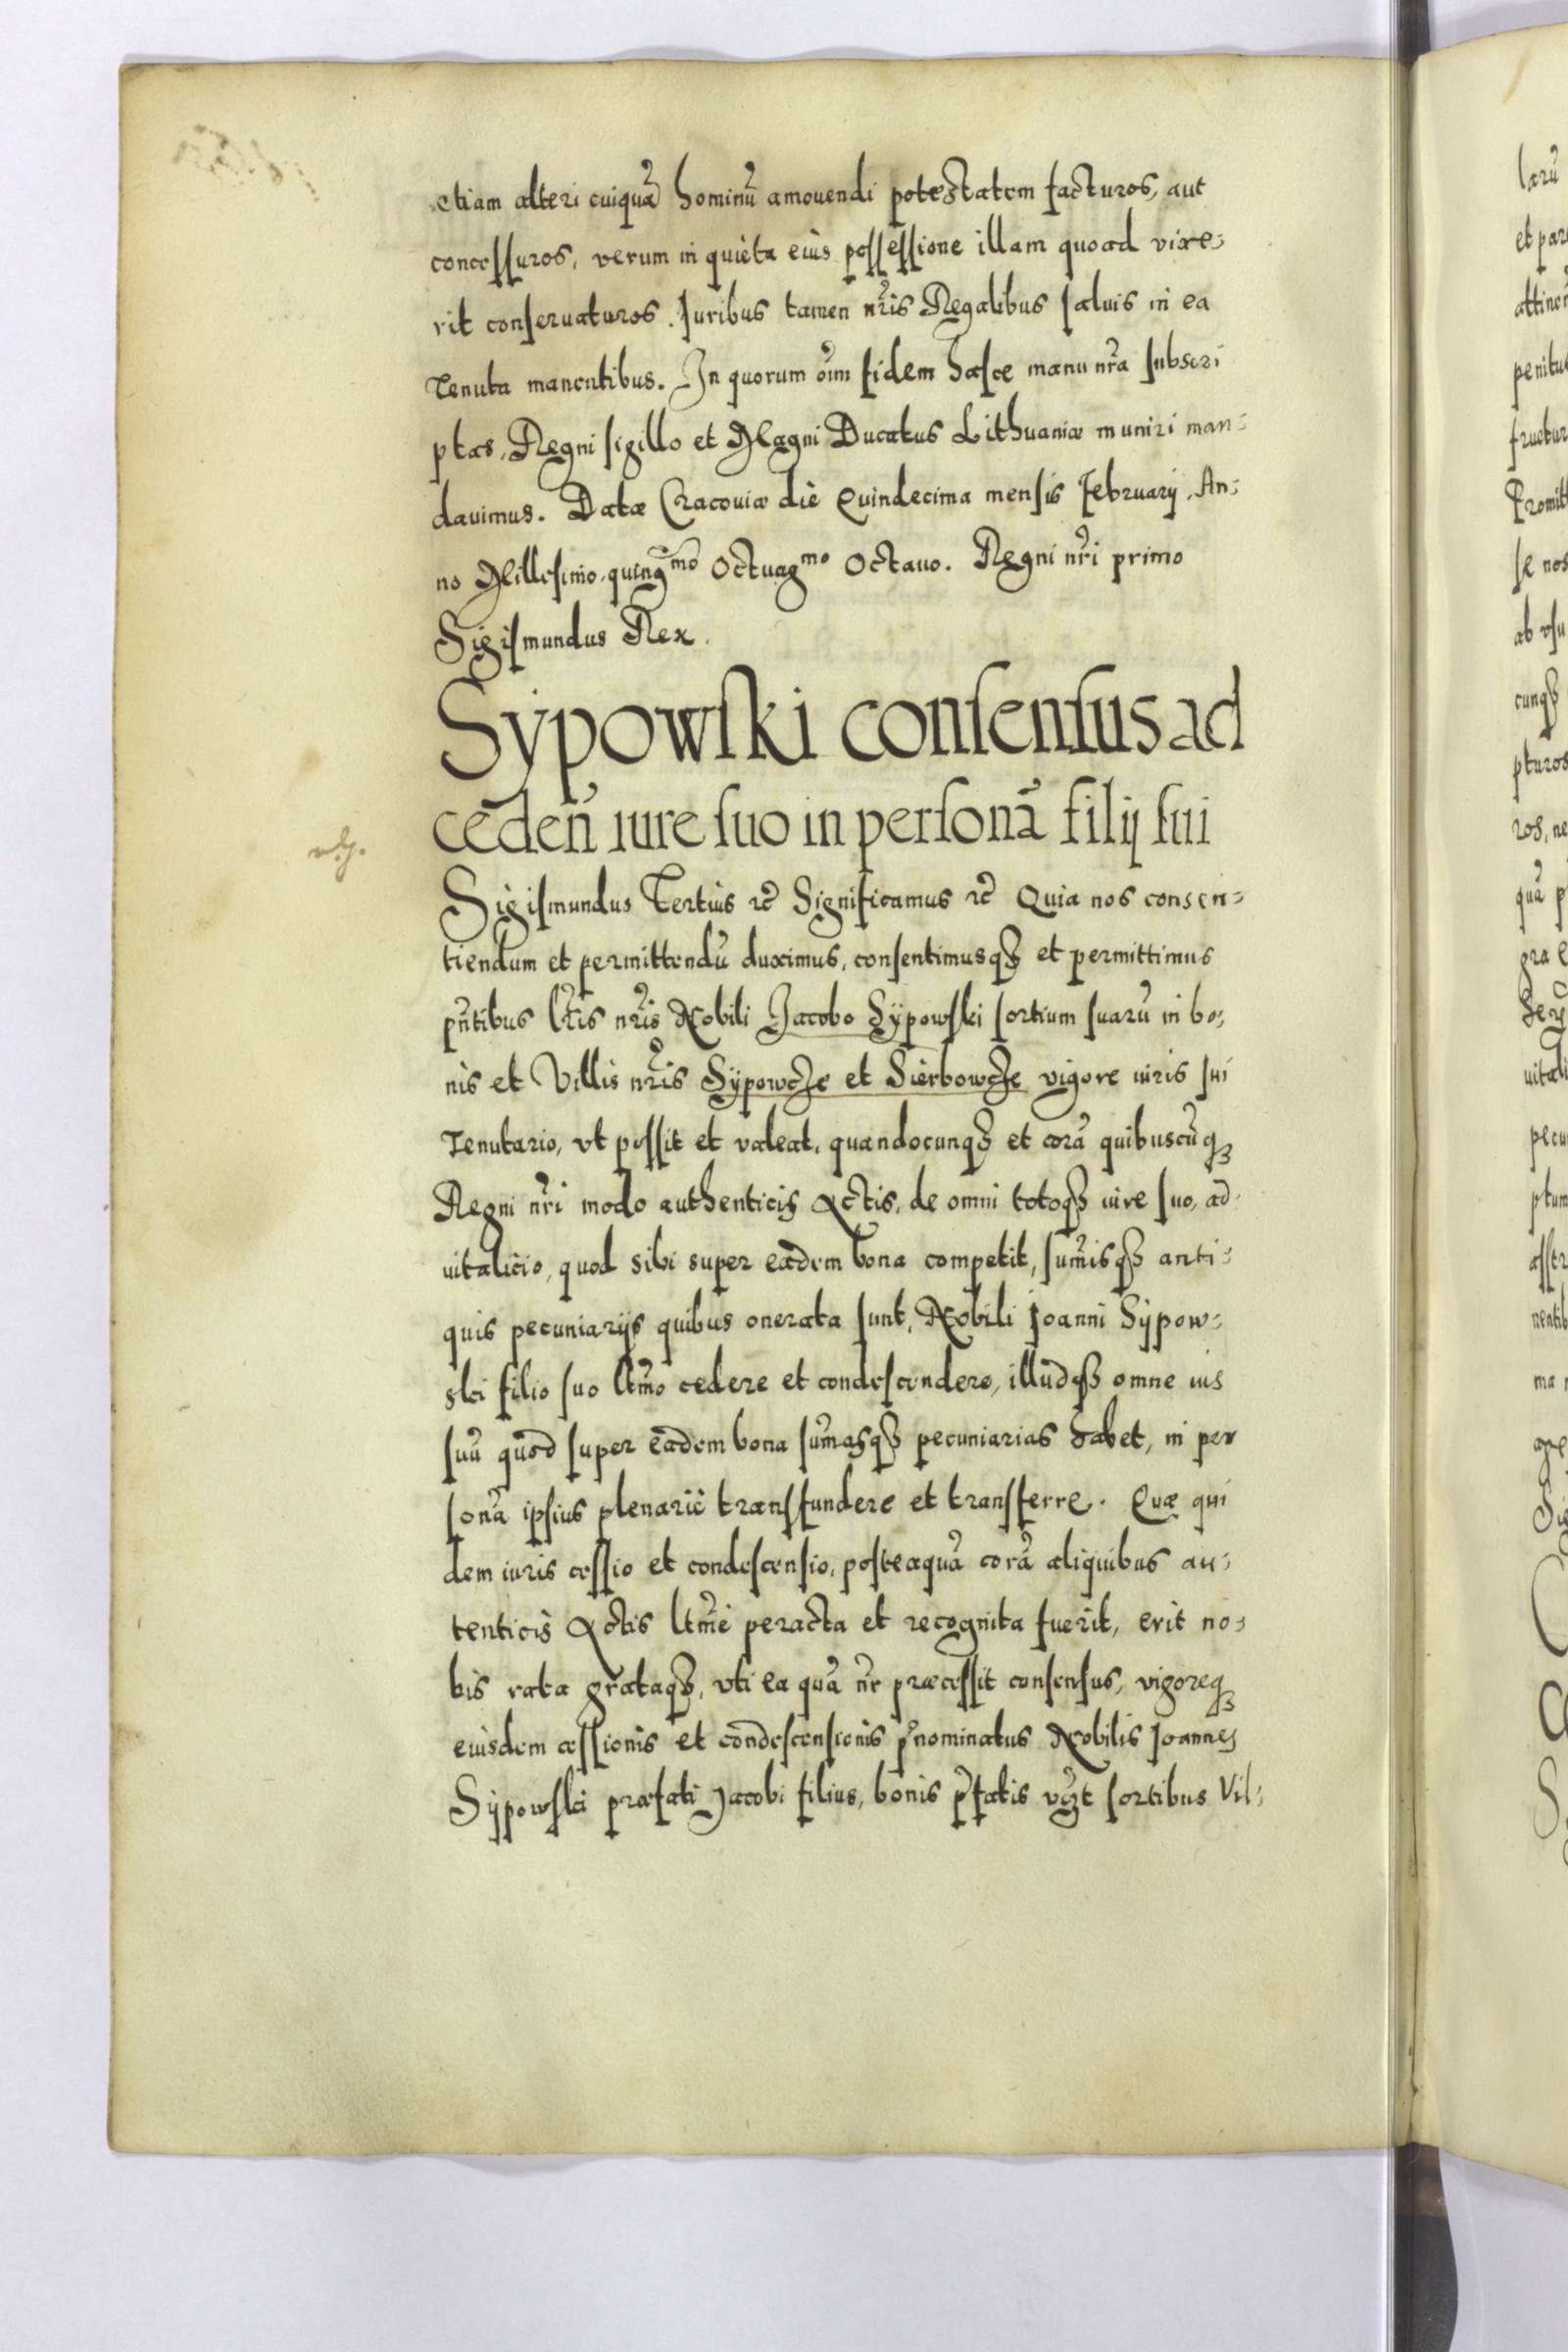 etiam alteri cuiquã hominũ amouendi potestatem facturos, aut
concessuros, verum in quieta eius possessione illam quoad vixe-
rit conseruaturos. Iuribus tamen nr̃is Regalibus saluis in ea
Tenuta manentibus. In quorum oĩm fidem hasce manu nr̃a subscri
ptas, Regni sigillo et Magni Ducatus Lithuaniæ muniri man-
dauimus. Datæ Cracouiæ die Quindecima mensis February. An-
no Millesimo quingmo Octuagmo Octauo. Regni nr̃i primo
Sigismundus Rex.
Sÿpowski consensus ad
cedeñ iure suo in personã filij sui
Sigismundus Tertius ꝛc̃ Significamus ꝛc̃ Quia nos consen-
tiendum et permittendũ duximus, consentimusqꝫ et permittimus
pñtibus lr̃is nr̃is Nobili Jacobo Sÿpowski sortium suarũ in bo-
nis et Villis nr̃is Sÿpowcze et Sierbowcze vigore iuris sui
Tenutario, vt possit et valeat, quandocunqꝫ et corã quibuscũqꝫ
Regni nr̃i modo authenticis Actis, de omni totoqꝫ iure suo, ad
uitalicio, quod sibi super eadem bona competit, sum̃isqꝫ anti-
quis pecuniarijs quibus onerata sunt, Nobili Joanni Sÿpow-
ski filio suo ltm̃o cedere et condescendere, illudqꝫ omne ius
suũ quod super eadem bona sum̃asqꝫ pecuniarias habet, in per
sonã ipsius plenarie transfundere et transferre. Quæ qui
dem iuris cessio et condescensio, posteaquã corã aliquibus au-
tenticis Actis ltm̃e peracta et recognita fuerit, erit no-
bis rata grataqꝫ, vti ea quã nr̃ præcessit consensus, vigoreqꝫ
eiusdem cessionis et condescensionis p̃nominatus Nobilis Joannes
Sÿpowski præfati Jacobi filius, bonis p̃fatis vꝫt sortibus Vil-